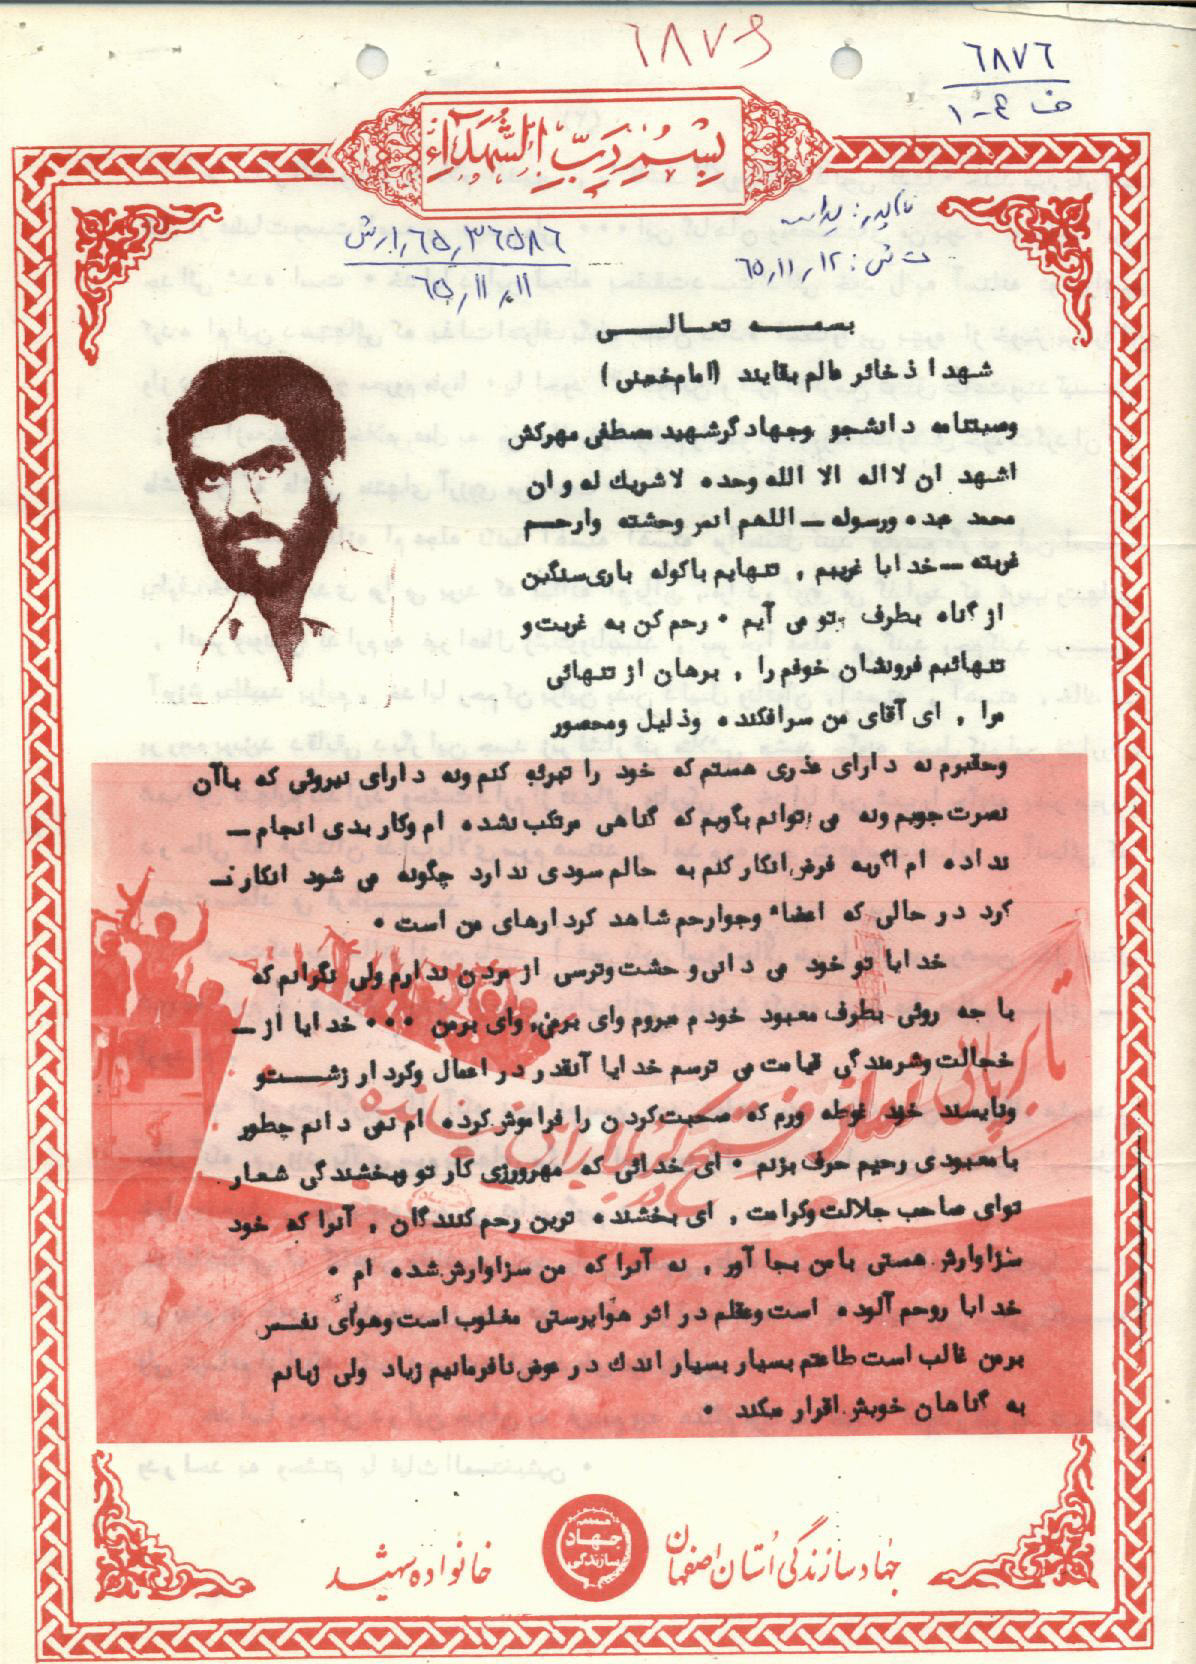 ٦٨٧٦
٦٨٧٦
ف ٤-١
بسم رب الشهداء
ت ش: ٦٥/١١/١٢
٦٥/١١/١١
بسمه تعالی
شهدا ذخائر عالم بقایند (امام خمینی)
وصیتنامه دانشجو وجهادگرشهید مصطفی مهرکش
اشهد ان لااله الا الله وحده لاشریك له و ان
محمد عبده ورسوله - اللهم انس وحشته وارحم
غربته - خدایا غریبم , تنهایم باکوله باری سنگین
از گناه بطرف تو می آیم . رحم کن به غربت و
تنهائیم فرونشان خوفم را , برهان از تنهائی
مرا , ای آقای من سرافکنده وذلیل ومحصور
وحقیرم نه دارای عذری هستم که خود را تبرئه کنم ونه دارای نیروئی که باآن
نصرت جویم ونه می توانم بگویم که گناهی مرتکب نشده ام وکار بدی انجام -
نداده ام اگربه فرض انکار کنم به حالم سودی ندارد چگونه می شود انکار -
کرد در حالی که اعضاء وجوارحم شاهد کردارهای من است .
خدایا تو خود می دانی وحشت وترسی از مردن ندارم ولی نگرانم که
با چه روئی بطرف معبود خودم میروم وای برمن, وای برمن ... خدایا از -
خجالت وشرمندگی قیامت می ترسم خدایا آنقدر در اعمال وکردار زشت و
وناپسند خود غوطه ورم که صحبت کردن را فراموش کرده ام نمی دانم چطور
بامعبودی رحیم حرف بزنم . ای خدائی که مهرورزی کار تو وبخشندگی شعار
توای صاحب جلالت وکرامت , ای بخشنده ترین رحم کنندگان , آنرا که خود
سزاوارش هستی بامن بجا آور , نه آنرا که من سزاوارش شده ام .
خدایا روحم آلوده است وعقلم در اثر هواپرستی مغلوب است وهوای نفس
برمن غالب است طاعتم بسیار بسیار اندك در عوض نافرمانیم زیاد ولی زبانم
به گناهان خویش اقرار میکند .
جهاد سازندگی استان اصفهان
جهاد
سازندگی
خانواده شهید